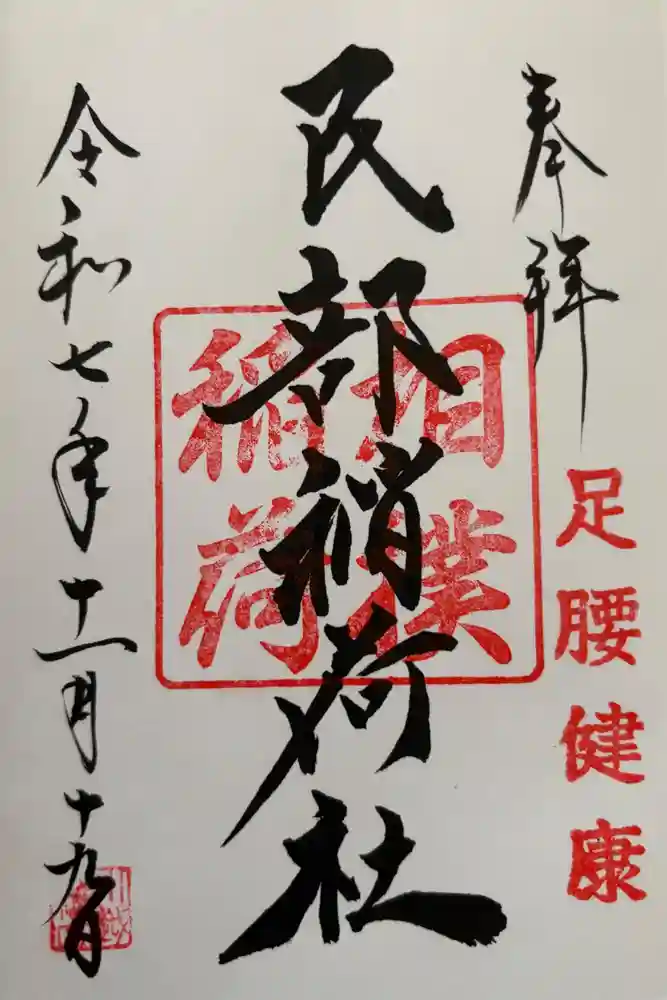 奉拝
足腰健康
民部稲荷社
相撲
稲荷
令和七年十一月十九日